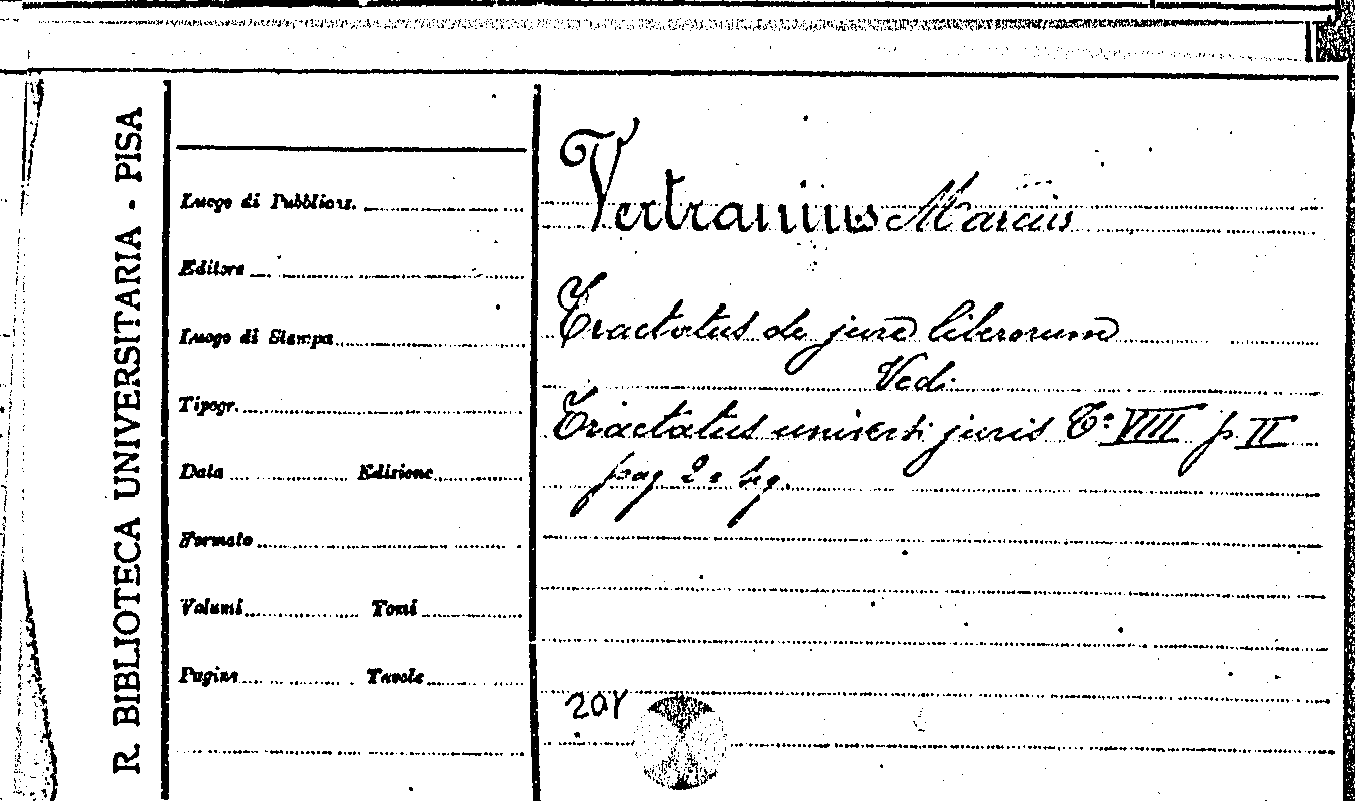 R. BIBLIOTECA UNIVERSITARIA - PISA
Luogo di Pubblicaz.
Editore
Luogo di Stampa
Tipogr.
Data Edizione
Formato
Volumi Tomi
Pagine Tavole
Vertranius Marcius
Tractatus de jure liberorum
Vedi
Tractatus universi juris T.º VIII p II
pag 2 e seg.